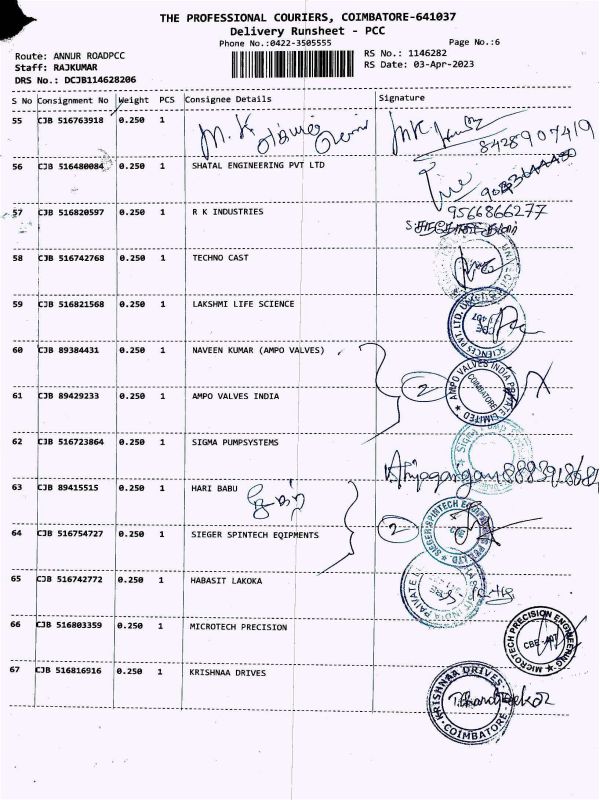 THE PROFESSIONAL COURIERS, COIMBATORE-641037
Delivery Runsheet - PCC
Phone No.:0422-3505555
Page No.:6
Route: ANNUR ROADPCC
RS No.: 1146282
Staff: RAJKUMAR
RS Date: 03-Apr-2023
DRS No.: DCJB114628206
S No Consignment No Weight PCS Consignee Details Signature
55 CJB 516763918 0.250 1 M. K
8428907419
56 CJB 516480084 0.250 1 SHATAL ENGINEERING PVT LTD
57 CJB 516820597 0.250 1 R K INDUSTRIES 9566866277
58 CJB 516742768 0.250 1 TECHNO CAST
59 CJB 516821568 0.250 1 LAKSHMI LIFE SCIENCE
SCIENCES PVT. LTD.
60 CJB 89384431 0.250 1 NAVEEN KUMAR (AMPO VALVES)
2 AMPO VALVES INDIA PRIVATE LIMITED
COIMBATORE
61 CJB 89429233 0.250 1 AMPO VALVES INDIA
62 CJB 516723864 0.250 1 SIGMA PUMPSYSTEMS
63 CJB 89415515 0.250 1 HARI BABU
64 CJB 516754727 0.250 1 SIEGER SPINTECH EQIPMENTS 2
65 CJB 516742772 0.250 1 HABASIT LAKOKA
66 CJB 516803359 0.250 1 MICROTECH PRECISION
MICROTECH PRECISION ENGINEERING
67 CJB 516816916 0.250 1 KRISHNAA DRIVES
KRISHNAA DRIVES
COIMBATORE